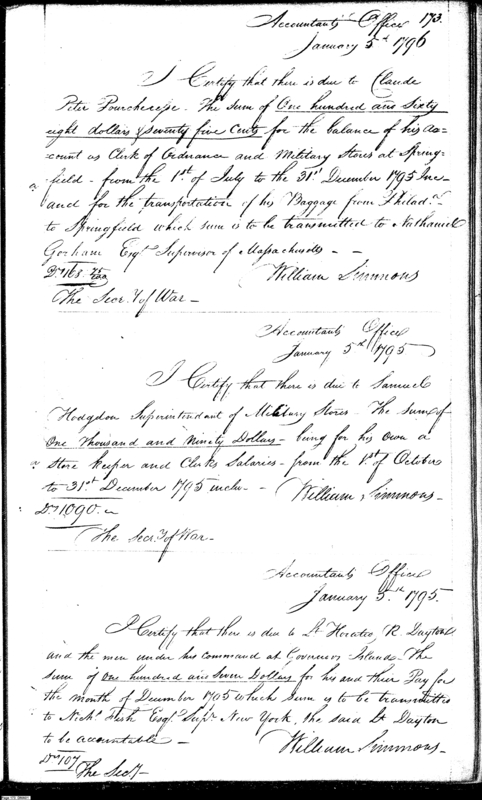 173.
Accountants Office
January 5th 1796
I Certify that there is due to Claude
Peter the Sum of One hundred and Sixty
eight dollars & Seventy five Cents for the balance of his ac=
=count as Clerk of Ordnance and Military Stores at Spring=
field - from the 1st of July to the 31st December 1795 Inc-
and for the transportation of his Baggage from Philada
to Springfield which sum is to be transmitted to Nathaniel
Gorham Esqr Supervisor of Massachusetts - -
Ds 168. 75/100
William Simmons
The Secry of War -
Accountants Office
January 5th 1795
I Certify that there is due to Samuel
Hodgdon Superintendant of Military Stores - The sum of
One Thousand and Ninety Dollars - being for his own a
Store keeper and Clerks Salaries - from the 1st of October
to 31st December 1795 inclu -
William Simmons -
Ds 1090.
The Secry of War -
Accountants Office
January 5th 1795.
I Certify that there is due to Lt Horatio R. Dayton
and the men under his command at Governors Island - The
sum of one hundred and Seven Dollars for his and their Pay for
the month of December 1795 which sum is to be transmitted
to Nichs Fish Esqr Supr New York, the said Lt Dayton
to be accountable -
William Simmons -
Ds 107
The Secy -